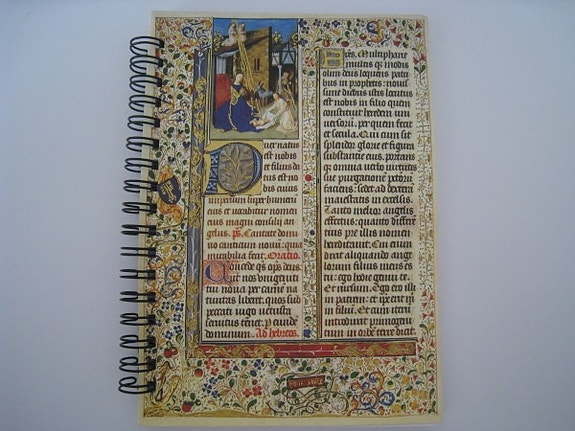 uer natus
est nobis
et filius da
tus est no
bis cuius
imperium super humeri
eius et vocabitur nomen
eius magni consilii an
gelus. ps. Cantate domi
no canticum novu: quia
mirabilia fecit. Oratio.
Concede qs ops deus
ut nos unigeniti
tui nova per carne na
tivitas liberet. quos sub
peccati iugo vetusta
servitus tenet. p eunde
dominum. Ad hebreos.
res. Multipharie
multis qz modis
olim deus loquens patri
bus in prophetis: novis
sime diebus istis locutus
est nobis in filio quem
constituit heredem uni
versorum. per quem fecit
et secula. Qui cum sit
splendor glorie et figura
substantie eius. portans
qz omnia verbo virtutis
sue purgationem pctorum
faciens: sedet ad dexteram
maiestatis in excelsis.
Tanto melior angelis
effectus: quanto differen
tius pre illis nomen
hereditavit. Cui enim
dixit aliquando ange
lorum filius meus es
tu: ego hodie genui te.
Et rursum. Ego ero illi
in patrem: et ipse erit mi
in filium. Et cum iterum
introducit primogeni
tum in orbe terre dicit.